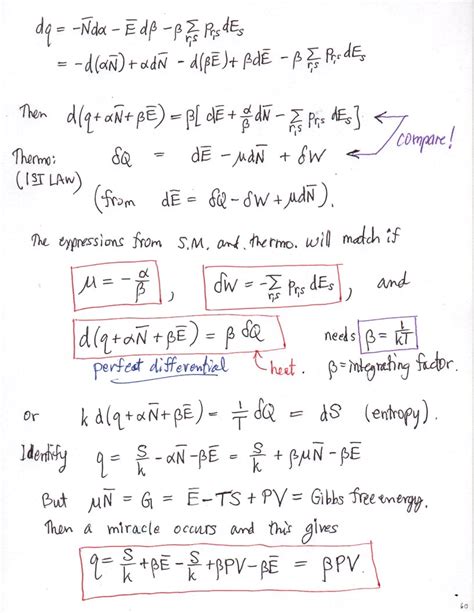 dq = -N̄dα - Ē dβ - β Σ_{r,s} P_{r,s} dE_s
= -d(αN̄) + αdN̄ - d(βĒ) + βdĒ - β Σ_{r,s} P_{r,s} dE_s
Then d(q+αN̄+βĒ) = β[ dĒ + α/β dN̄ - Σ_{r,s} P_{r,s} dE_s ]
compare!
Thermo: δQ = dĒ - μdN̄ + δW
(1ST LAW) (from dĒ = δQ - δW + μdN̄).
The expressions from S.M. and thermo. will match if
μ = -α/β , δW = -Σ_{r,s} P_{r,s} dE_s , and
d(q+αN̄+βĒ) = β δQ needs β = 1/kT
perfect differential heat. β = integrating factor.
or k d(q+αN̄+βĒ) = 1/T δQ = dS (entropy).
Identify q = S/k - αN̄ - βĒ = S/k + βμN̄ - βĒ
But μN̄ = G = Ē - TS + PV = Gibbs free energy.
Then a miracle occurs and this gives
q = S/k + βĒ - S/k + βPV - βĒ = βPV.